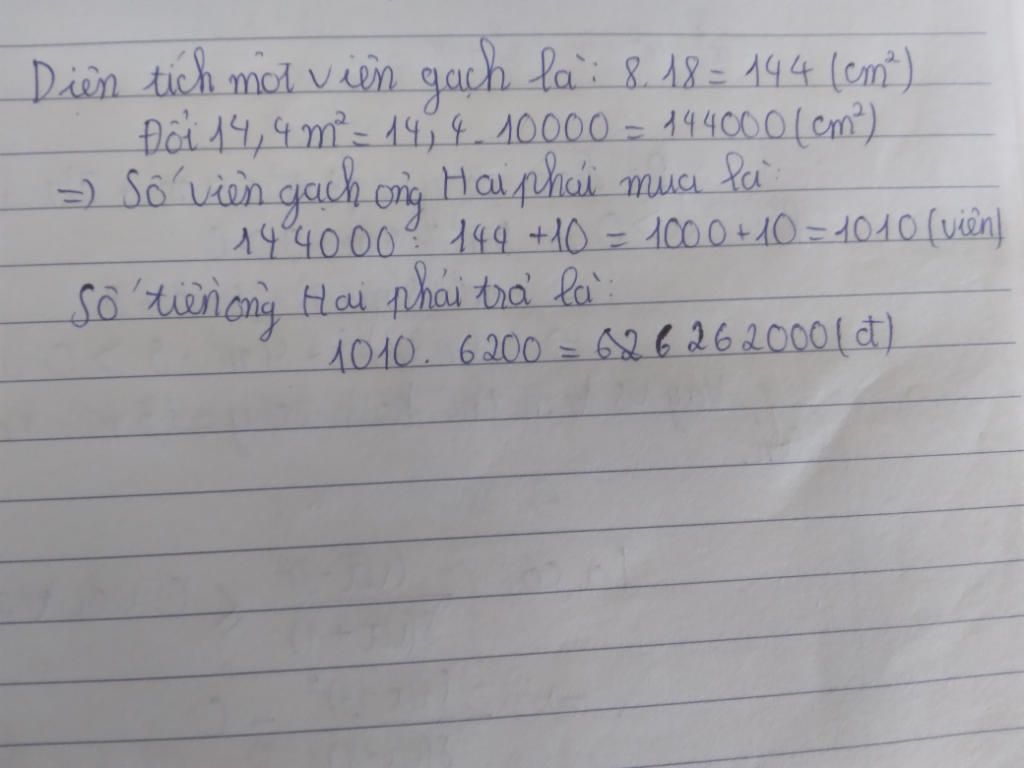 Diện tích một viên gạch là: 8.18 = 144 (cm²)
Đổi 14,4m² = 14,4.10000 = 144000(cm²)
=) Số viên gạch ông Hai phải mua là:
144000: 144 +10 = 1000+10 = 1010 (viên)
Số tiền ông Hai phải trả là:
1010. 6200 = 626262000(đ)